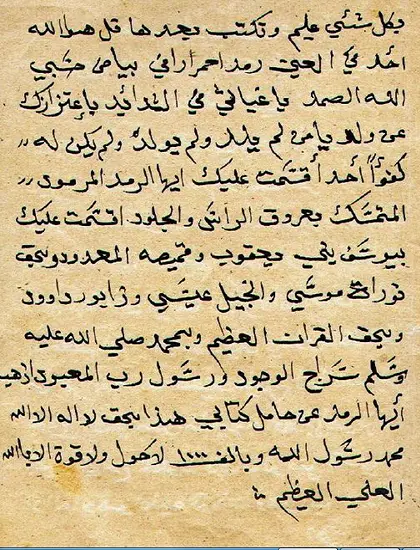 بكل شئي عليم وتكتب بعدها قل هو الله
احد في العين رمد احمرارا في بياض حسبي
الله الصمد يا غياثي في الشدائد باعتزازك
عن ولد يا من لم يلد ولم يولد ولم يكن له
كفؤاً أحد أقسمت عليك ايها الرمد المرمود
المتمسك بعروق الراس والجلود اقسمت عليك
بيوسف بني يعقوب وقميصه المعدود وبحق
توراة موسي وانجيل عيسي وزابور داوود
وبحق القران العظيم وبمحمد صلي الله عليه
وسلم سراج الوجود ورسول رب المعبود اذهب
أيها الرمد عن حامل كتابي هذا بحق لا اله الا الله
محمد رسول الله وبالف ١٠٠٠ لا حول ولا قوة الا بالله
العلي العظيم